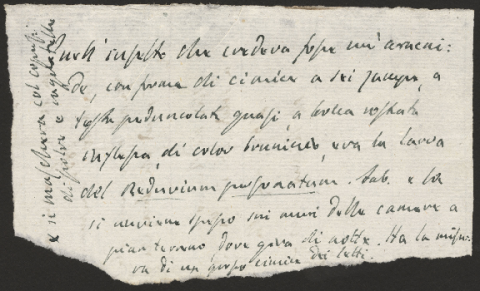 Quell' insetto che credeva fosse un' aracni:
de, con forma di cimice a sei zampe, a
testa pedunculata quasi, a bocca rostrata
inflessa, di color brunino, era la larva
del Reduvium personatum. Fab. e la
si rinviene spesso sui muri delle camere a
pian terreno dove gira di notte. Ha la misu-
ra di un grosso cimice dei letti.
e si maschera col coprirsi
di polvere e